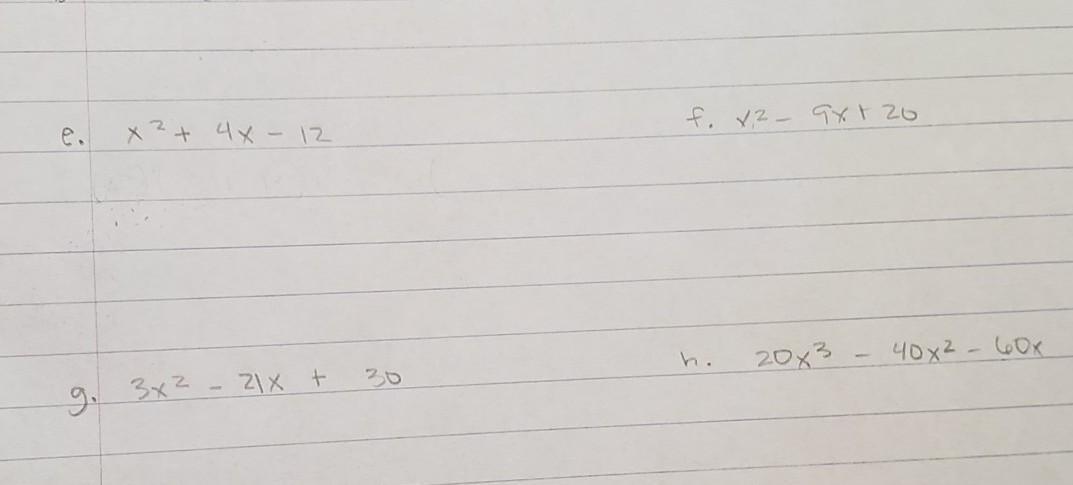 e. x² + 4x - 12
f. x² - 9x + 20
g. 3x² - 21x + 30
h. 20x³ - 40x² - 60x